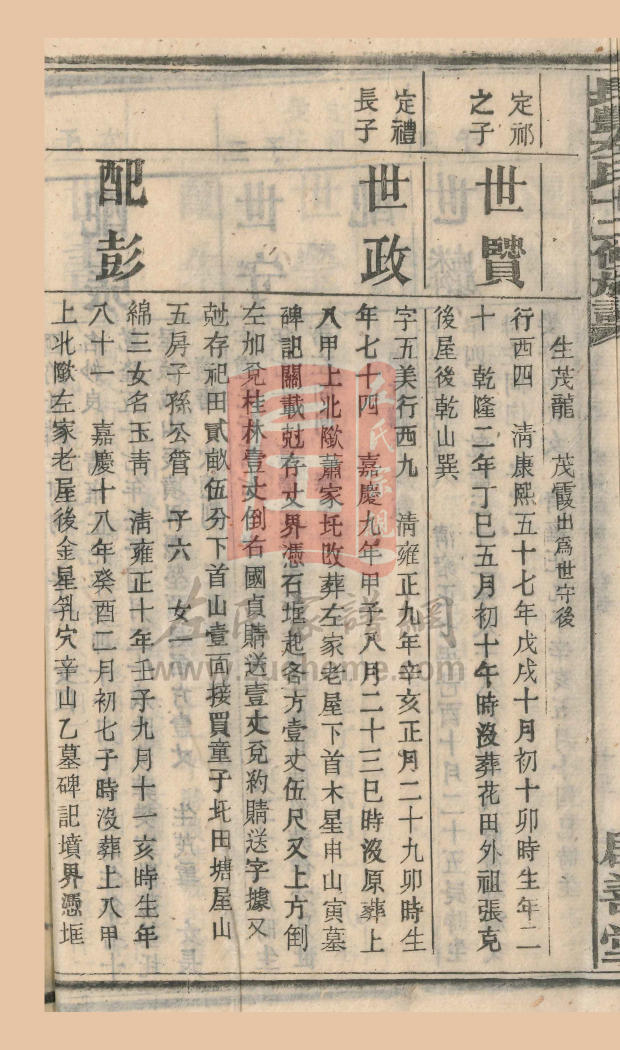 生茂龍　茂霞出為世守後
定祁
之子
世賢
行西四　清康熙五十七年戊戌十月初十卯時生年二
十　乾隆二年丁巳五月初十午時沒葬花田外祖張克
後屋後乾山巽
定禮
長子
世政
字五美行西九　清雍正九年辛亥正月二十九卯時生
年七十四　嘉慶九年甲子八月二十三巳時沒原葬上
八甲上北隞蕭家坵改葬左家老屋下首木星申山寅墓
碑記關載尅存丈界憑石堩起各方壹丈伍尺又上方倒
左加兌桂林壹丈倒右國貞購送壹丈兌約購送字據又
尅存祀田貳畝伍分下首山壹面接買童子坵田塘屋山
五房子孫公管　子六　女一
配彭
綿三女名玉靑　清雍正十年壬子九月十一亥時生年
八十一　嘉慶十八年癸酉二月初七子時沒葬上八甲
上北隞左家老屋後金星乳穴辛山乙墓碑記墳界憑堩
左氏家譜網
www.zuoshome.com